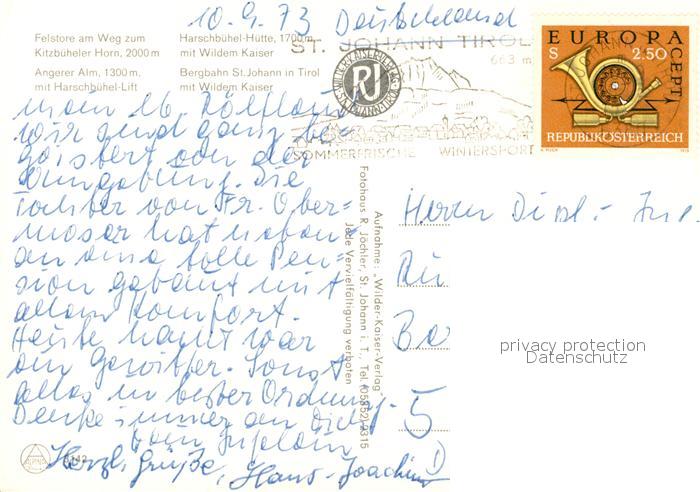 10.9.73 Deutschland
Felstore am Weg zum
Kitzbüheler Horn, 2000 m
Angerer Alm, 1300 m,
mit Harschbühel-Lift
Harschbühel-Hütte, 1700 m,
mit Wildem Kaiser
Bergbahn St. Johann in Tirol
mit Wildem Kaiser
ST. JOHANN TIROL
663 m
SOMMERFRISCHE WINTERSPORT
EUROPA
CEPT
S 2.50
REPUBLIK ÖSTERREICH
wir sind ganz be-
geistert von der
Umgebung. Die
Tochter von Fr. Ober-
moser hat neben-
an eine tolle Pen-
sion gebaut mit
allem Komfort.
Heute Nacht war
ein Gewitter. Sonst
alles in bester Ordnung.
Denke immer an Dich
Herzl. Grüße, Hans-Joachim
Aufnahme: „Wilder-Kaiser-Verlag"
Fotohaus R. Jöchler, St. Johann i. T., Tel. (05352) 2315
Jede Vervielfältigung verboten
Herrn Dipl.-
5
privacy protection
Datenschutz